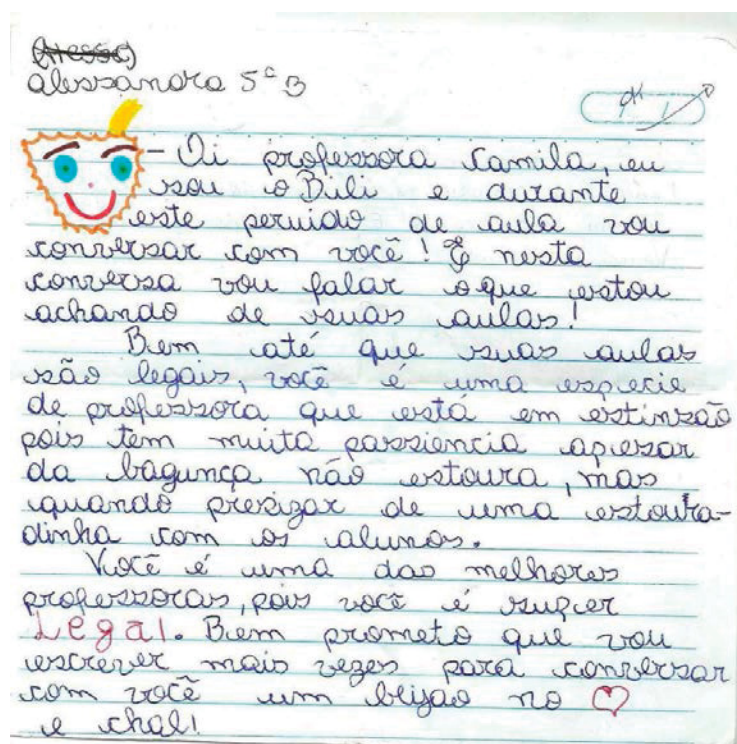 Alessandra 5ª B
OK
- Oi professora Camila, eu
sou o Buli e durante
este peruido de aula vou
conversar com você! E nesta
conversa vou falar oque estou
achando de suas aulas!
Bem até que suas aulas
são legais, você é uma especie
de professora que está em estinsão
pois tem muita passiencia apesar
da bagunça não estoura, mas
quando presizar de uma estoura-
dinha com os alunos.
Você é uma das melhores
professoras, pois você é super
Legal. Bem prometo que vou
escrever mais vezes para conversar
com você um beijao no ♡
e chal!